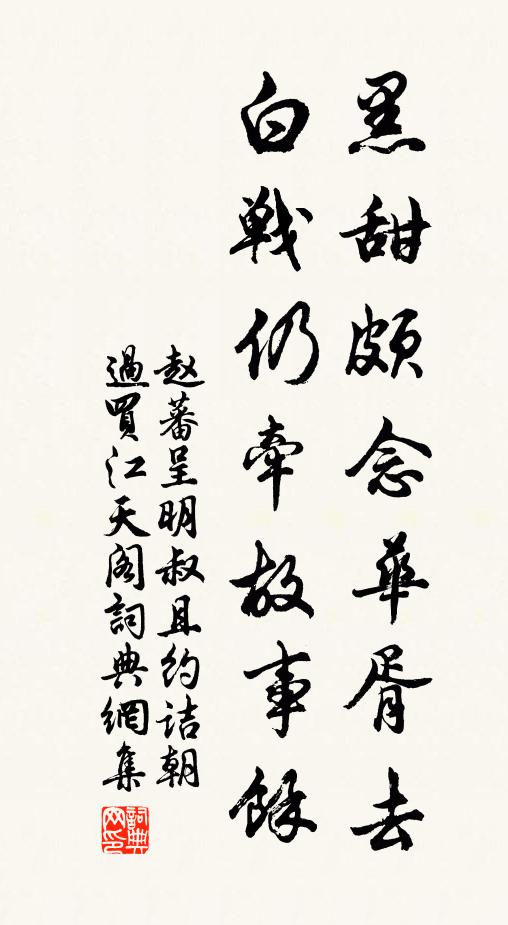 黑甜頗念華胥去
白戰仍牽故事餘
赵蕃呈明叔且约诘朝
過買江天阁詞典網集
詞典网印